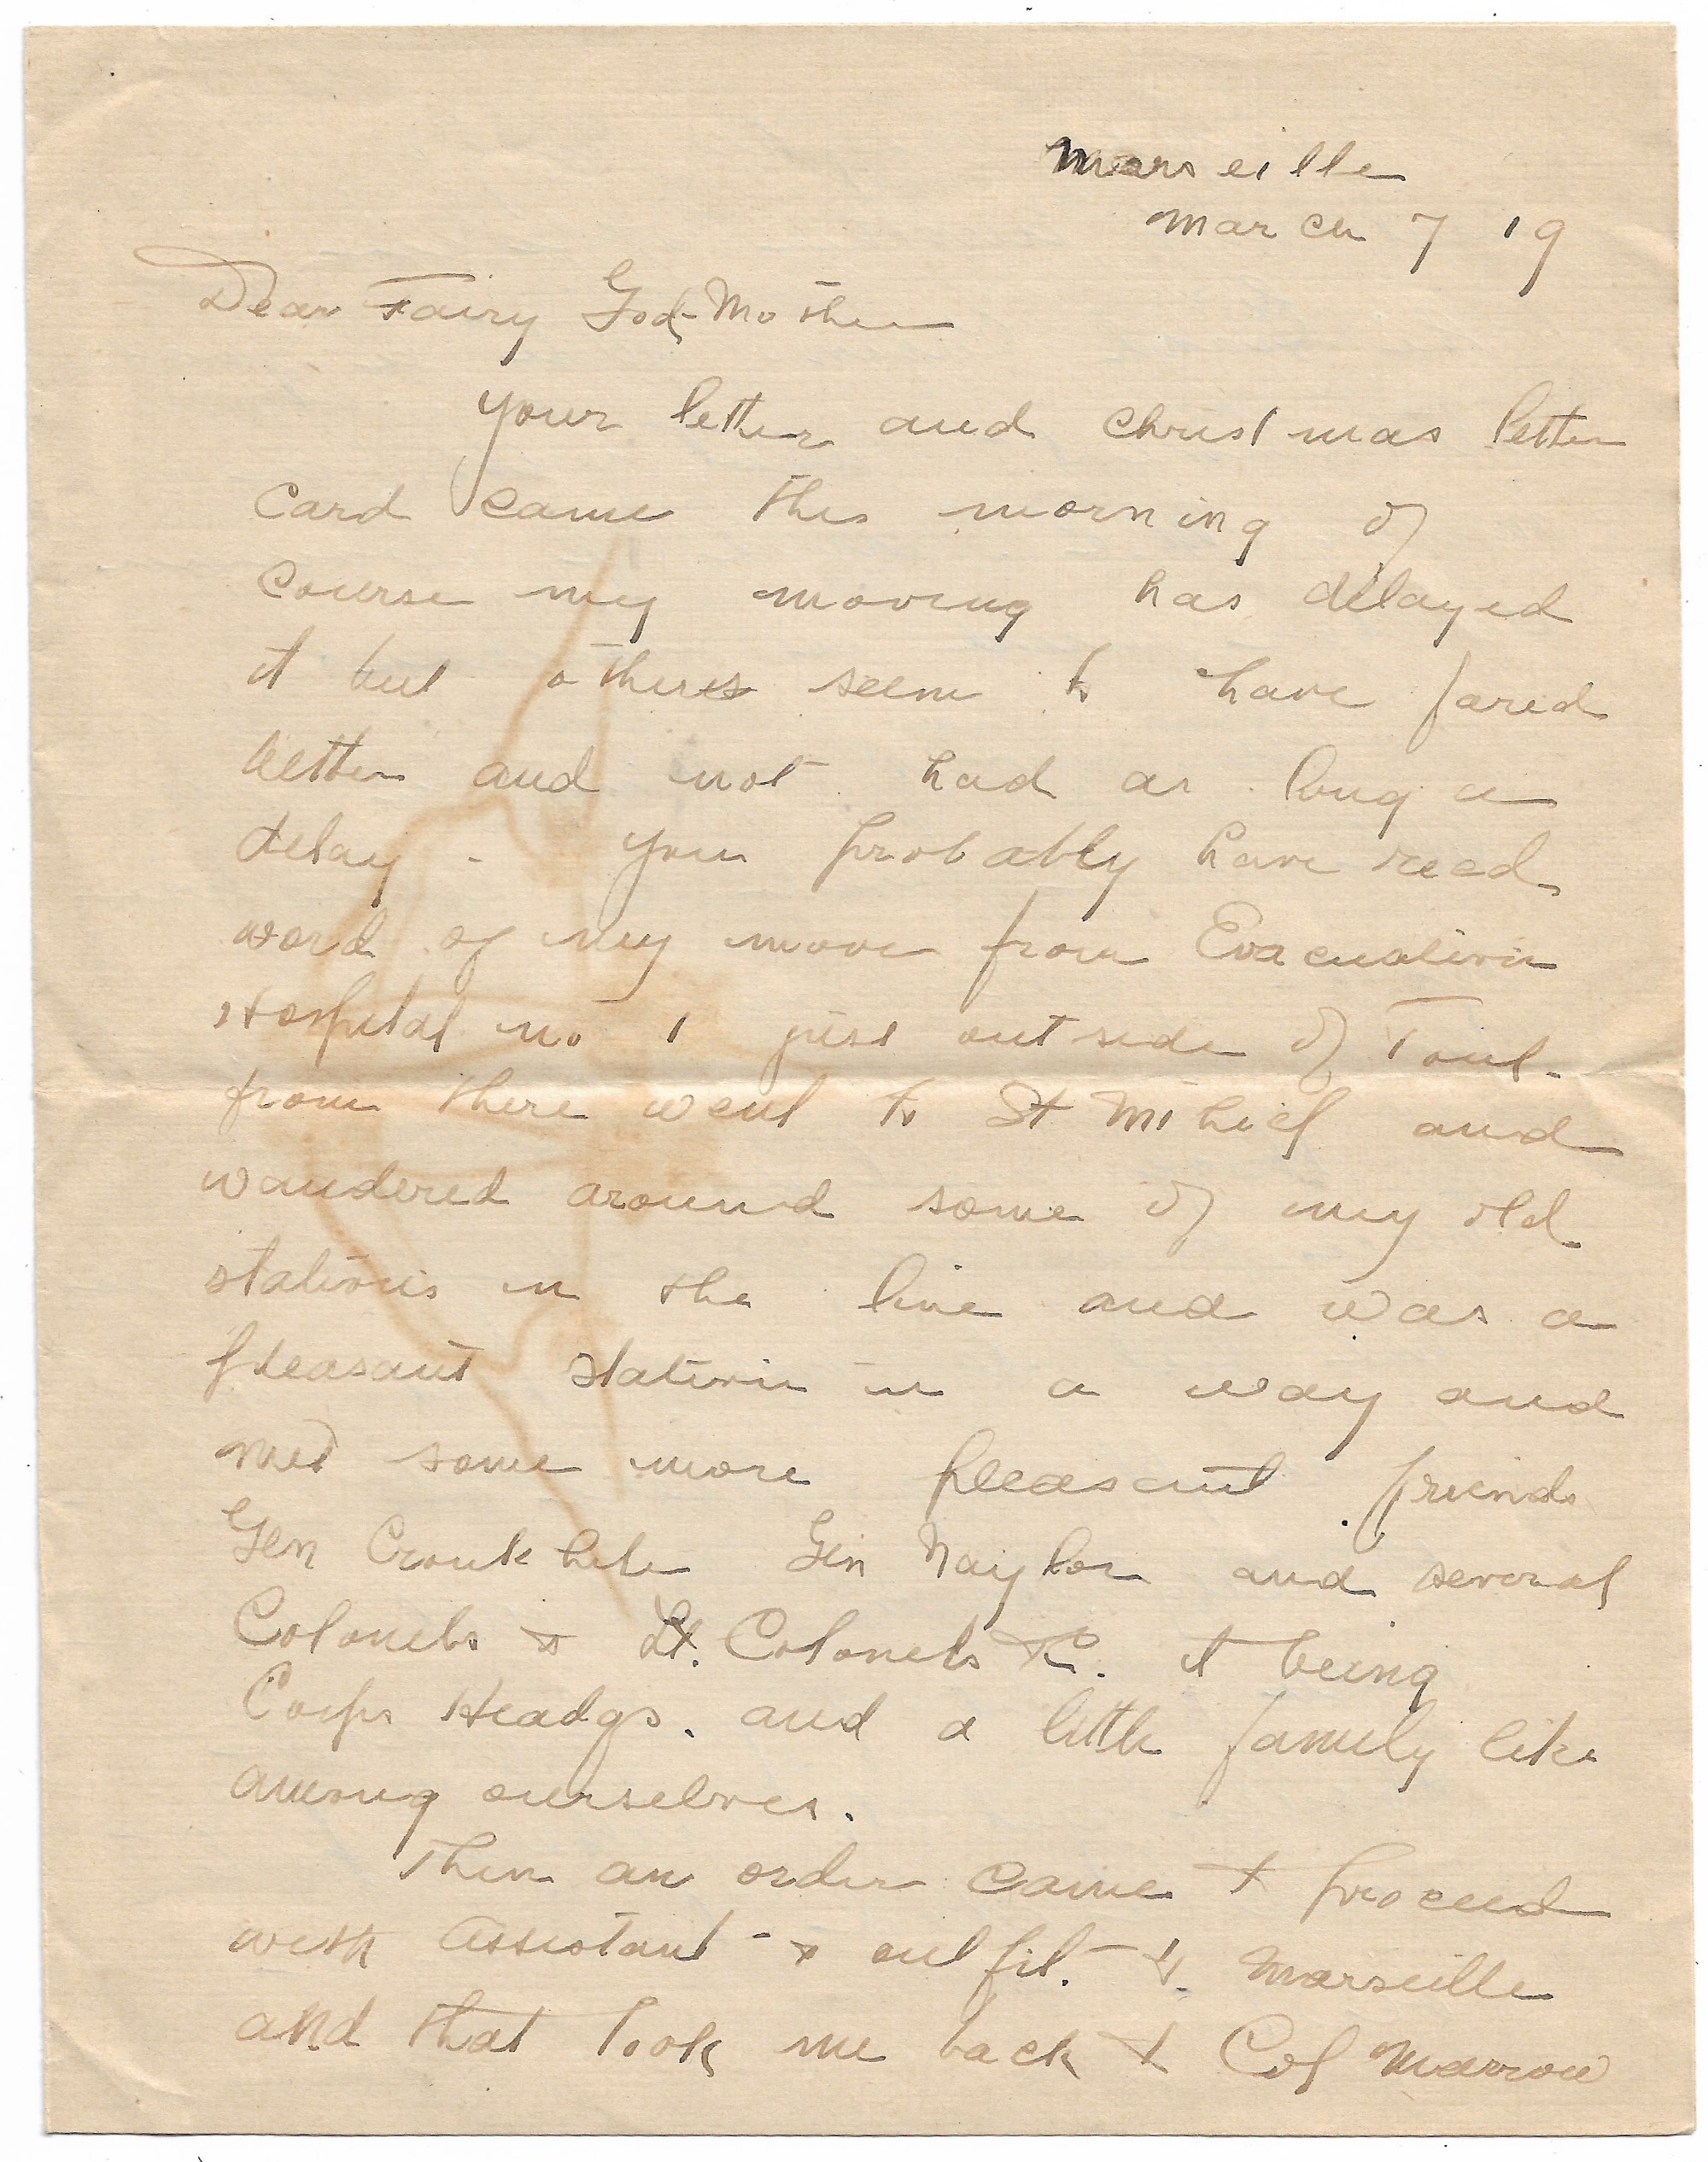 Marseille
March 7 19
Dear Fairy God-Mother
Your letter and Christmas letter
card came this morning of
course my moving has delayed
it but others seem to have fared
better and not had as long a
delay - You probably have recd
word of my move from Evacuation
Hospital no 1 just outside of Toul.
from there went to St Mihiel and
wandered around some of my old
stations in the line and was a
pleasant station in a way and
met some more pleasant friends
Gen Cronkhite Gen Naylor and several
Colonels & Lt. Colonels &c. it being
Corps Headqs. and a little family like
among ourselves.
Then an order came to proceed
with assistant - & outfit. - to Marseille
and that took me back to Col Marrow